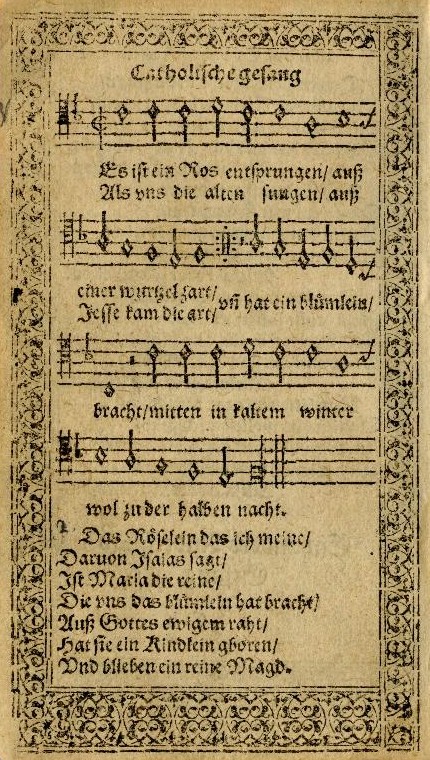 Catholische gesang
Es ist ein Ros entsprungen/ auß
Als vns die alten sungen/ auß
einer wurtzel zart/
Jesse kam die art/ vñ hat ein blůmlein/
bracht/mitten in kaltem winter
wol zu der halben nacht.
2
Das Röselein das ich meine/
Daruon Isaias sagt/
Ist Maria die reine/
Die vns das blůmlein hat bracht/
Auß Gottes ewigem raht/
Hat sie ein Kindlein gboren/
Vnd blieben ein reine Magd.